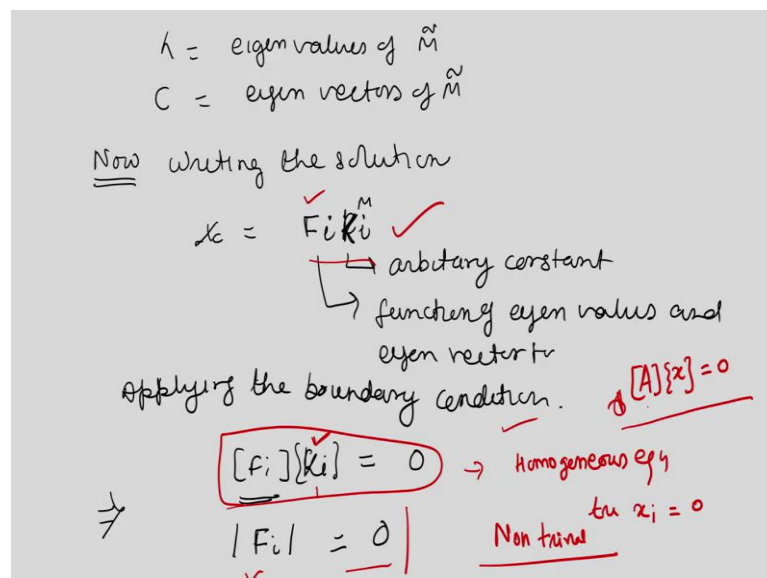 λ = eigen values of M̃
C = eigen vectors of M̃
Now writing the solution
= Fi Ki
→ arbitary constant
→ function of eigen value and
eigen vector
Applying the boundary condition.
[A]{x}=0
[Fi]{Ki} = 0 → Homogeneous eqn
xi = 0
⇒ |Fi| = 0 Non trival